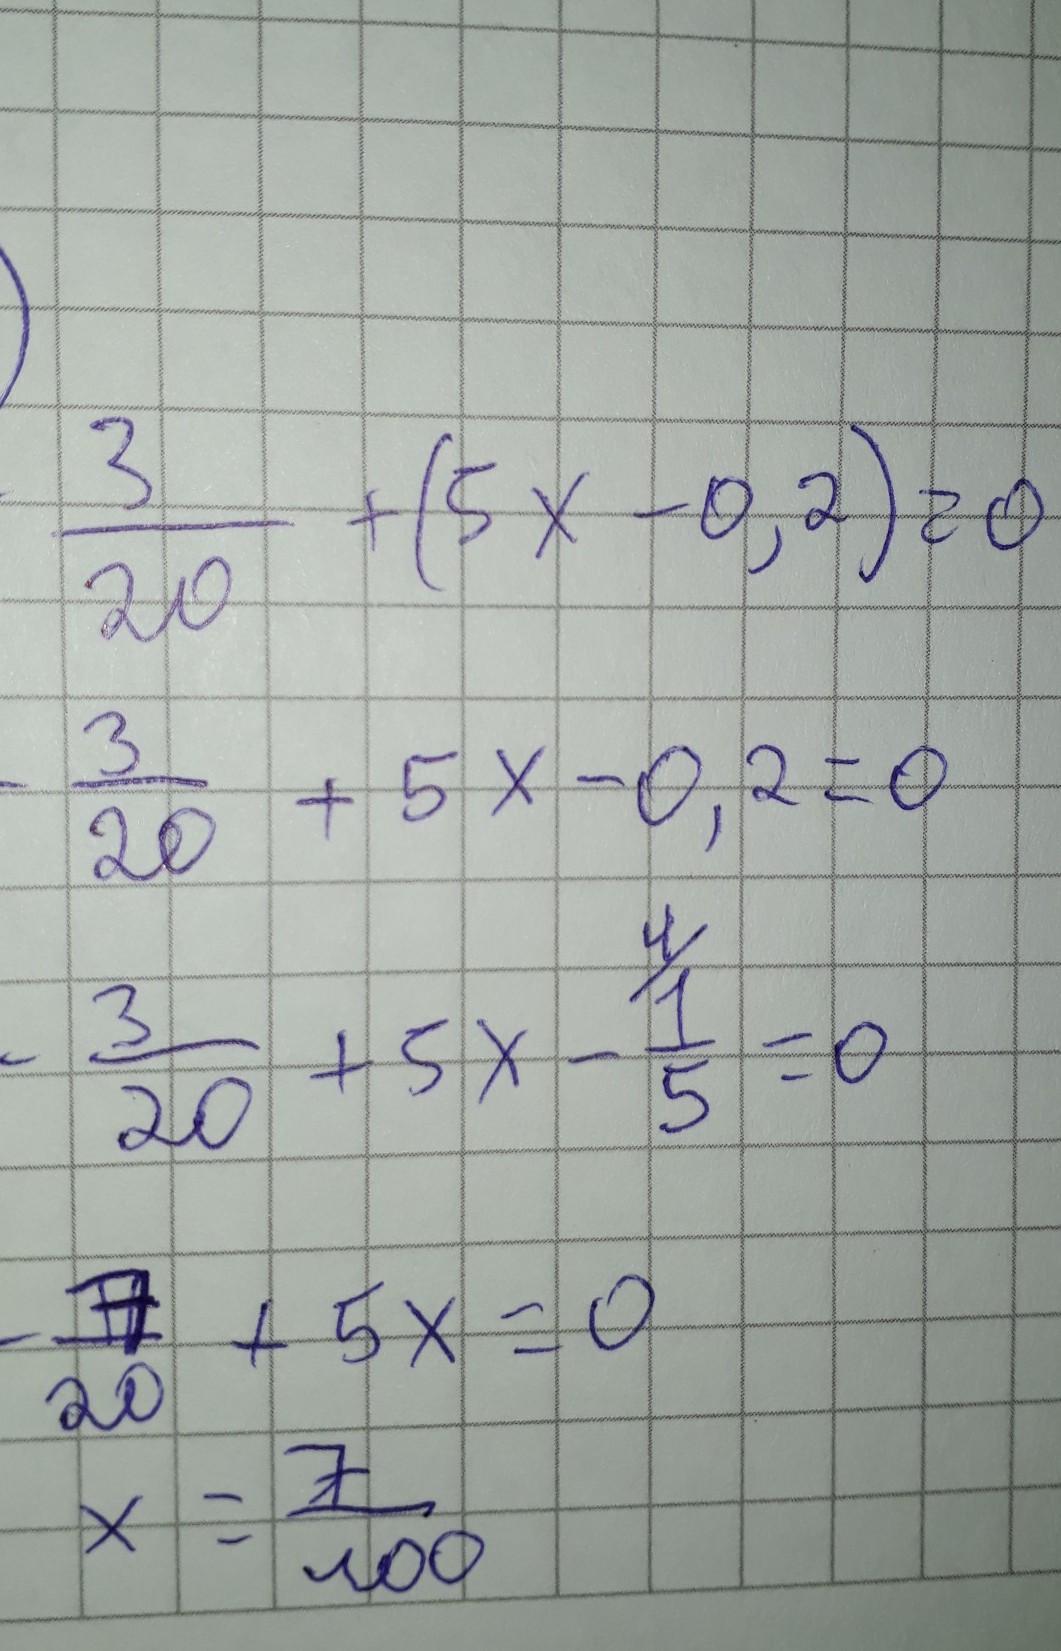 )
- 3/20 + (5x - 0,2) = 0
- 3/20 + 5x - 0,2 = 0
- 3/20 + 5x - 4/ 1/5 = 0
- 7/20 + 5x = 0
x = 7/100